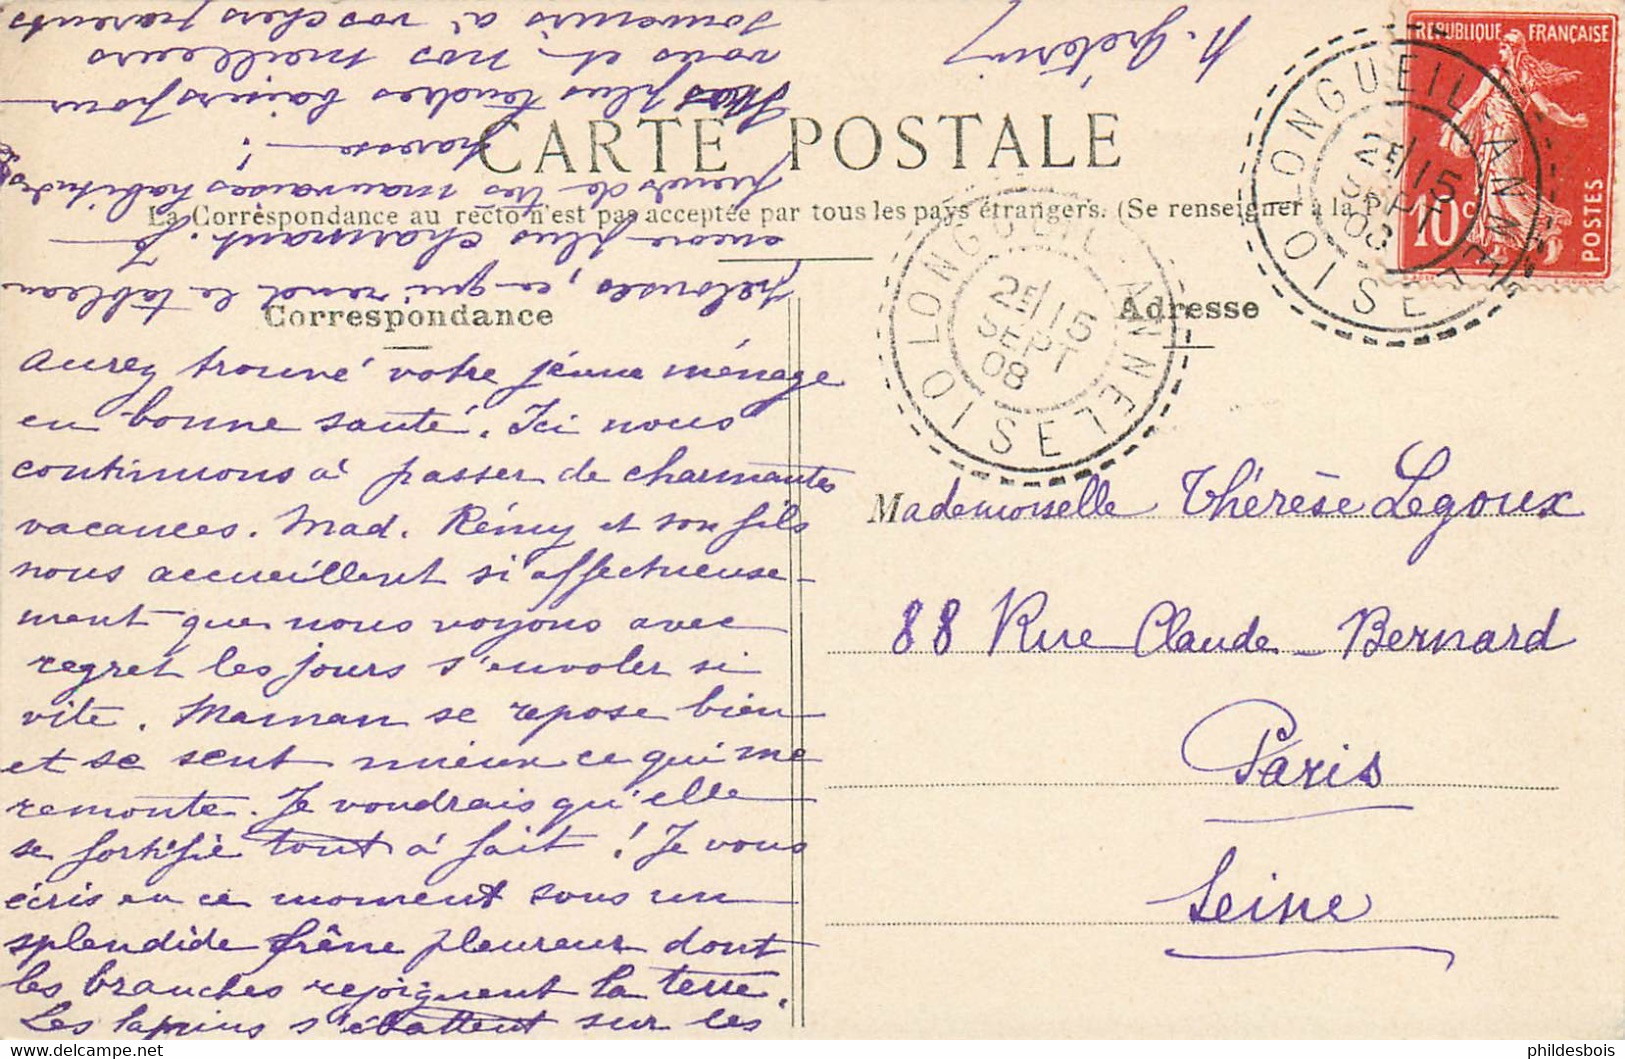 RÉPUBLIQUE FRANÇAISE
10 c
POSTES
LONGUEIL-ANNEL
OISE
2E/15
SEPT
08
CARTE POSTALE
La Correspondance au recto n'est pas acceptée par tous les pays étrangers. (Se renseigner à la
Correspondance
Adresse
LONGUEIL-ANNEL
OISE
2E/15
SEPT
08
aurez trouvé votre jeune ménage
en bonne santé. Ici nous
continuons à passer de charmantes
vacances. Mad. Rémy et son fils
nous accueillent si affectueuse-
ment que nous voyons avec
regret les jours s'envoler si
vite. Maman se repose bien
et se sent mieux ce qui me
remonte. Je voudrais qu'elle
se fortifie tout à fait ! Je vous
écris en ce moment sous un
splendide frêne pleureur dont
les branches rejoignent la terre.
Les lapins s'ébattent sur les
pelouses, ce qui rend le tableau
encore plus charmant. Je
prends de très mauvaises habitudes
paresse !
plus tendres baisers pour
vous et nos meilleurs
souvenirs à vos chers parents
Mademoiselle Thérèse Legoux
88 Rue Claude-Bernard
Paris
Seine
phildesbois